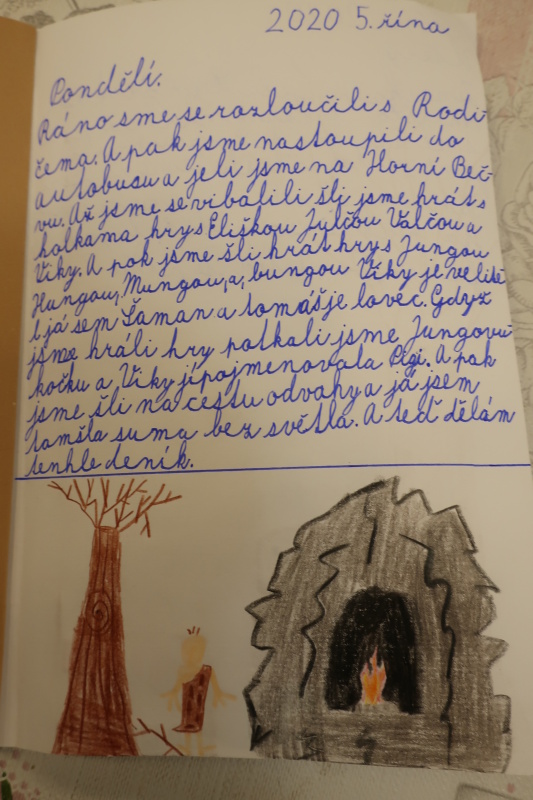 2020 5. října
Pondělí.
Ráno sme se rozloučili s Rodi-
čema. A pak jsme nastoupili do
autobusu a jeli jsme na Horní Beč-
vu. Až jsme se vibalili šli jsme hrát s
holkama hry s Eliškou Julčou Valčou a
Viky. A pak jsme šli hrát hry s Jungou
Hungou, Mungou, a, bungou Viky je velite
l já sem Šaman a tomáš je lovec. Gdyž
jsme hráli hry potkali jsme Jungovu
kočku a Viky jí pojmenovala Pigi. A pak
jsme šli na cestu odvahy a já jsem
tam šla su ma bez světla. A teď dělám
tenhle deník.